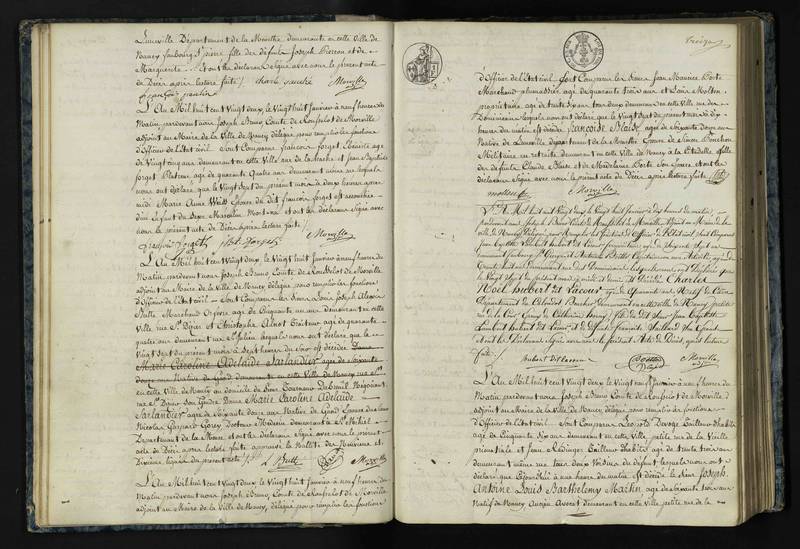 Luneville Département de la Meurthe demeurante en cette Ville de
Nancy faubourg St pierre fille des défunts Joseph Pierron et de
Marguerite et ont les déclarans signé avec nous le présent acte
de Décès après lecture faite
françois
L'An Mil huit cent Vingt deux, le Vingt huit Janvier à neuf heures du
Matin pardevant nous Joseph Bruno Comte de Rousselot de Morville
adjoint au Maire de la Ville de Nancy délégué pour remplir les fonctions
d'Officier de l'Etat civil Sont Comparus françois forget, Ebéniste agé
de Vingt cinq ans demeurant en cette Ville rue de la hache et Jean Baptiste
forget Platreur, agé de quarante quatre ans demeurant lesquels
nous ont déclaré que le Vingt sept du présent mois à deux heures après
midi Marie Anne Wéiss Epouse du dit françois forget est accouchée
d'un Enfant du Sexe Masculin Mort né et ont les déclarans Signé avec
nous le présent acte de Décès après lecture faite
forget forget Morville
L'An Mil huit cent Vingt deux, le Vingt huit Janvier à neuf heures du
Matin pardevant nous Joseph Bruno, Comte de Rousselot de Morville
adjoint au Maire de la Ville de Nancy délégué pour remplir les fonctions
d'Officier de l'Etat civil Sont Comparus les Sieurs Louis Joseph Alexis
Butte Marchand Orfèvre agé de Cinquante un ans demeurant en cette
Ville, rue St Dizier et Christophe Alnot Traiteur agé de quarante
quatre ans demeurant rue St Julien lesquels nous ont déclaré que le
Vingt Sept du présent mois à Sept heures du Soir est décédée Dame
Marie Caroline Adelaïde Sarlandier agée de Soixante
douze ans Native de Gand demeurant en cette Ville de Nancy rue St
en cette Ville de Nancy au domicile du Sieur
rue St Dizier Son Gendre Dame Marie Caroline Adelaïde
Sarlandier agée de Soixante douze ans Native de Gand Epouse du Sieur
Nicolas Gaspard Gorcy Docteur Médecin demeurant à St Mihiel
Département de la Meuse et ont les déclarans Signé avec nous le présent
acte de Décès après lecture faite approuvé la Nullité des Neuvième et
Dixième lignes du présent acte
L Butte Morville
L'An Mil huit cent Vingt deux, le Vingt huit Janvier à neuf heures du
Matin pardevant nous Joseph Bruno, Comte de Rousselot de Morville
adjoint au Maire de la Ville de Nancy, délégué pour remplir les fonctions
treize
d'Officier de l'Etat civil Sont Comparus les Sieurs Jean Maurice Porte
Marchand plumassier agé de quarante trois ans et Louis Molton
propriétaire agé de trente six ans tous deux demeurant en cette Ville rue des
Dominicains lesquels nous ont déclaré que le Vingt Sept du présent mois de dix
heures du matin est décédée Françoise Blaise agée de Soixante douze ans
Native de Luneville département de la Meurthe Epouse de Simon Bouchon
Militaire en retraite demeurant en cette Ville de Nancy à la Citadelle, fille
des défunts Claude Blaise et de Madelaine Porte Son Epouse et ont les
déclarans Signé avec nous le présent acte de Décès après lecture faite
Morville
L'An Mil huit cent Vingt deux le Vingt huit Janvier à dix heures du matin,
pardevant nous Joseph Bruno Comte de Rousselot de Morville Adjoint au Maire de la
Ville de Nancy Délégué pour Remplir les fonctions d'Officier de l'Etat civil Sont Comparus
Jean Baptiste Lambert hubert dit Lacour
demeurant faubourg St Georges et Antoine Capitaine en
trente huit ans Demeurant rue des Dominicains lesquels nous ont Déclaré que
le Vingt Sept du présent mois est Décédé Charles
Noël hubert dit Lacour agé de Natif de Caen
Département du Calvados demeurant en cette Ville de Nancy
Epoux de Catherine fils de dit Sieur Jean Baptiste
Lambert hubert dit Lacour et de Défunte Françoise
et ont les Déclarans Signé avec nous le présent Acte de Décès, après lecture
faite
hubert dit Lacour Morville
L'An Mil huit cent Vingt deux le Vingt huit Janvier à neuf heures du
Matin, pardevant nous Joseph Bruno Comte de Rousselot de Morville
adjoint au Maire de la Ville de Nancy délégué pour remplir les fonctions
d'Officier de l'Etat civil Sont Comparus Léopold Tailleur d'habits
agé de Cinquante Six ans demeurant en cette Ville, petite rue de la Vieille
primatiale et Jean Tailleur d'habits agé de trente trois ans
demeurant même rue tous deux Voisins du défunt lesquels nous ont
déclaré que à une heure du matin est décédé le Sieur Joseph
Antoine Louis Barthelemy Martin agé de Soixante trois ans
Natif de Nancy Ancien Avocat demeurant en cette Ville petite rue de la